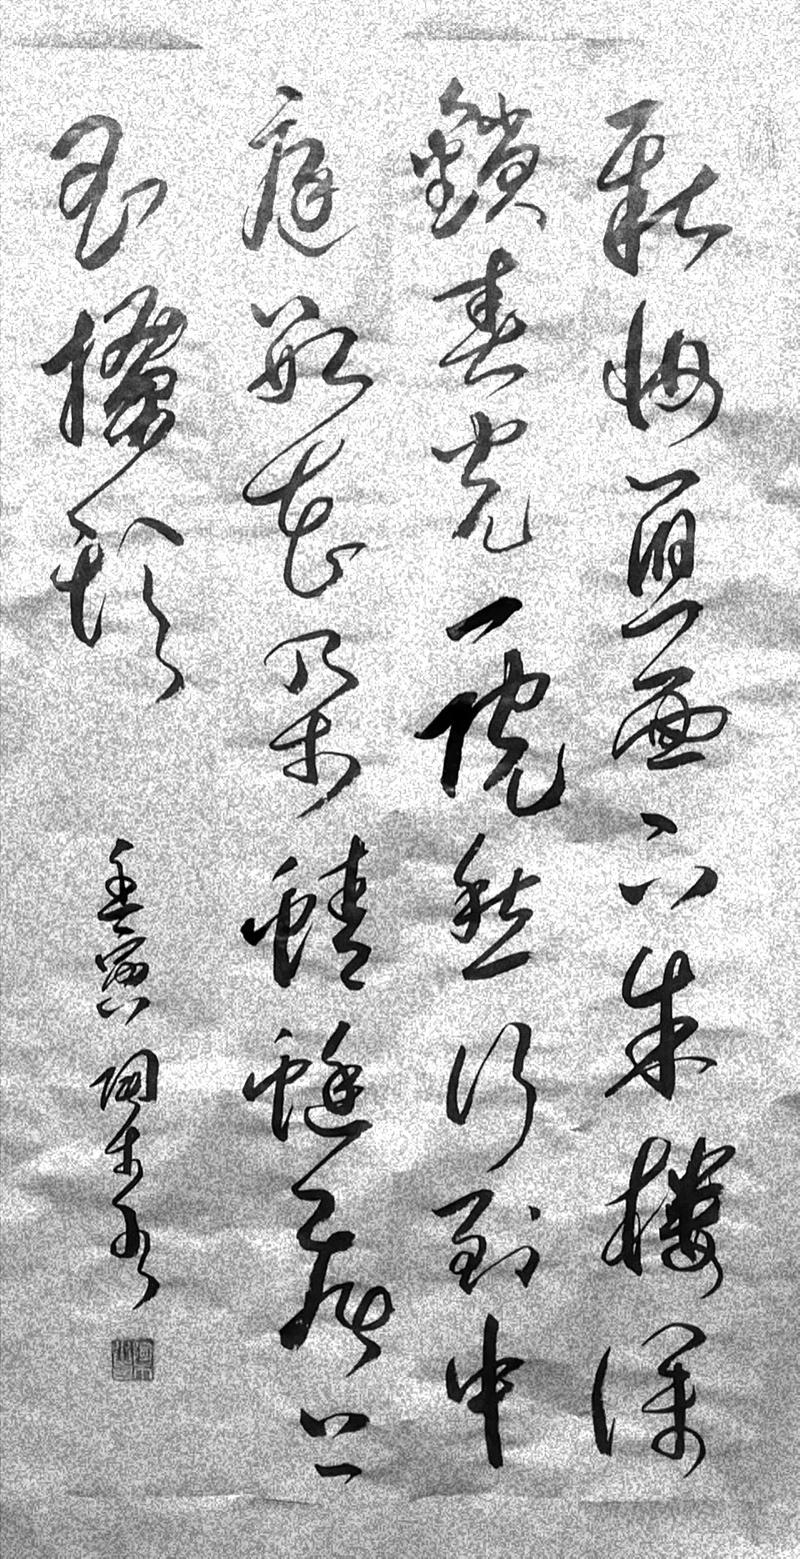 新妆宜面下朱楼深
鎖春光一院愁行到中
庭數花朵蜻蜓飛上
玉搔頭
壬寅